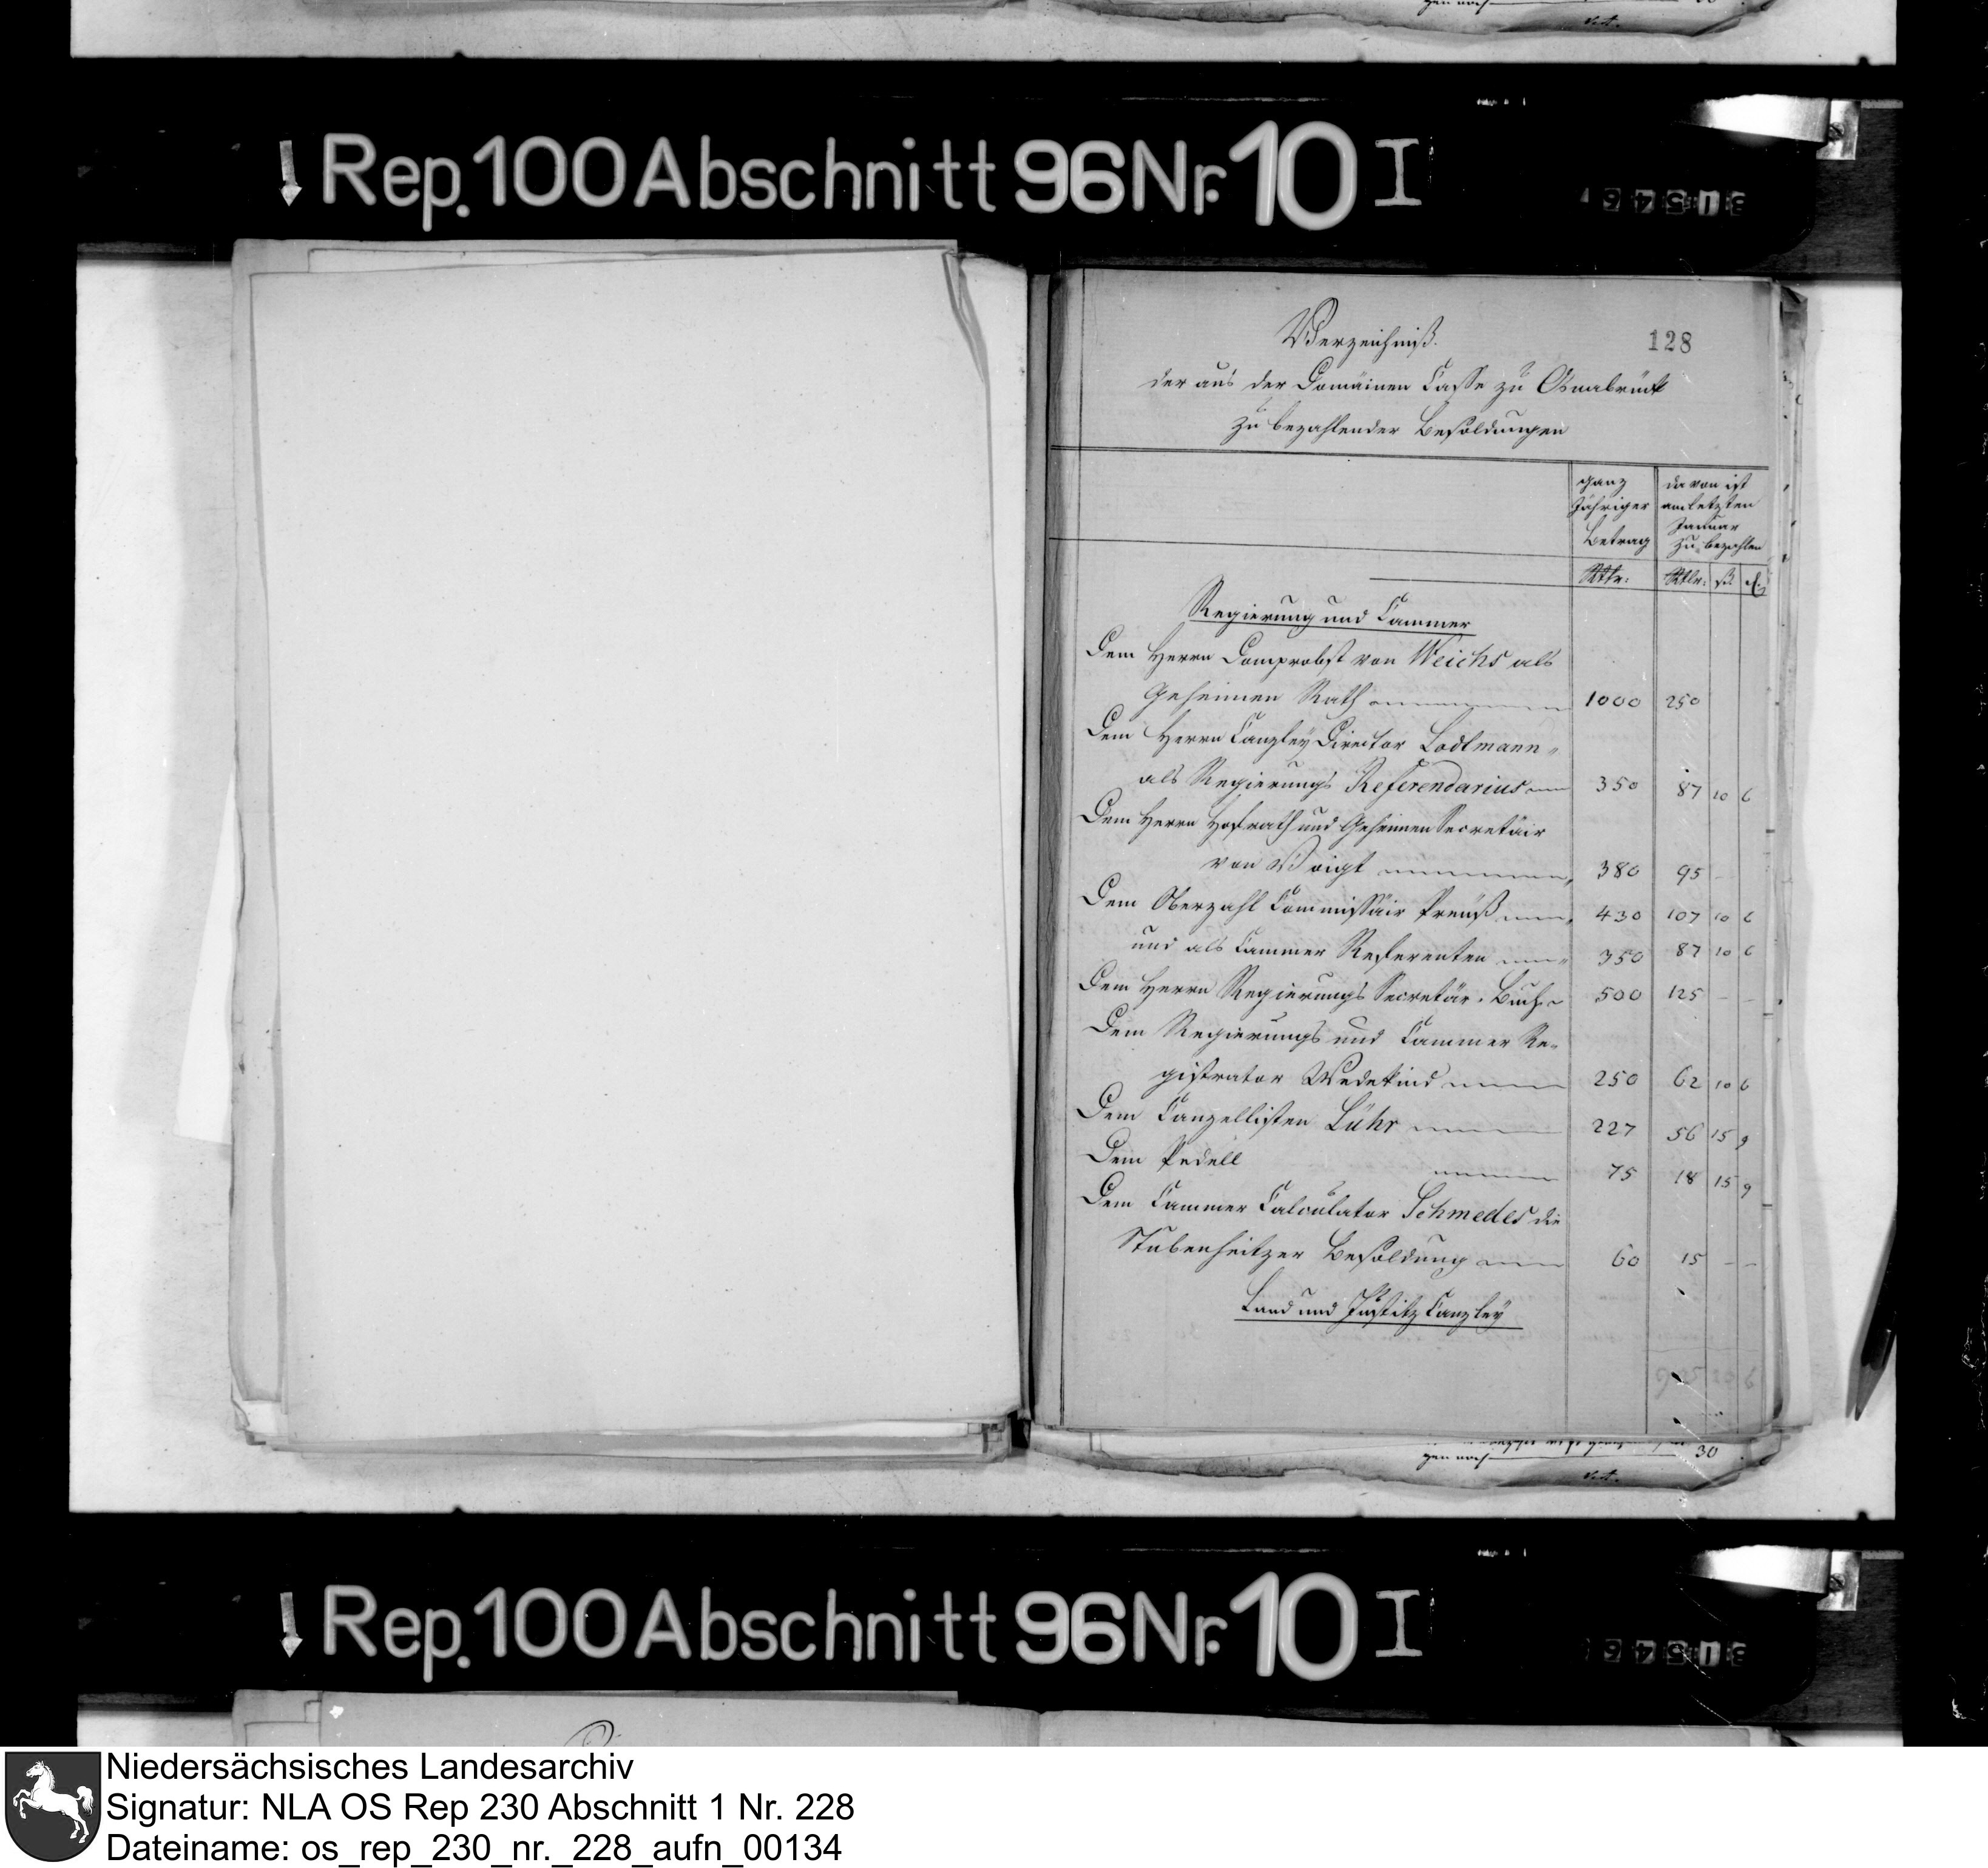 Rep. 100 Abschnitt 96 Nr. 10 I
Verzeichniß.
128
der aus der Domäinen Casse zu Osnabrück
zu bezahlender Besoldungen
ganz
jähriger
Betrag
davon ist
am letzten
Januar
zu bezahlen
Rtlr: Rtlr: ß. d.
Regierung und Cammer
Dem Herrn Domprobst von Weichs als
Geheimen Rath 1000 250
Dem Herrn Canzley Director Lodtmann
als Regierungs Referendarius 350 87 10 6
Dem Herrn Hofrath und Geheimen Secretäir
von Voigt 380 95 -
Dem Oberzahl Commissäir Preuß 430 107 10 6
und als Cammer Referenten 350 87 10 6
Dem Herrn Regierungs Secretär. Buch 500 125 - -
Dem Regierungs und Cammer Re-
gistrator Wedekind 250 62 10 6
Dem Canzellisten Lühr 227 56 15 9
Dem Pedell 75 18 15 9
Dem Cammer Calculator Schmedes die
Stubenheitzer Besoldung 60 15 - -
Land und Justitz Canzley
30
Rep. 100 Abschnitt 96 Nr. 10 I
Niedersächsisches Landesarchiv
Signatur: NLA OS Rep 230 Abschnitt 1 Nr. 228
Dateiname: os_rep_230_nr._228_aufn_00134